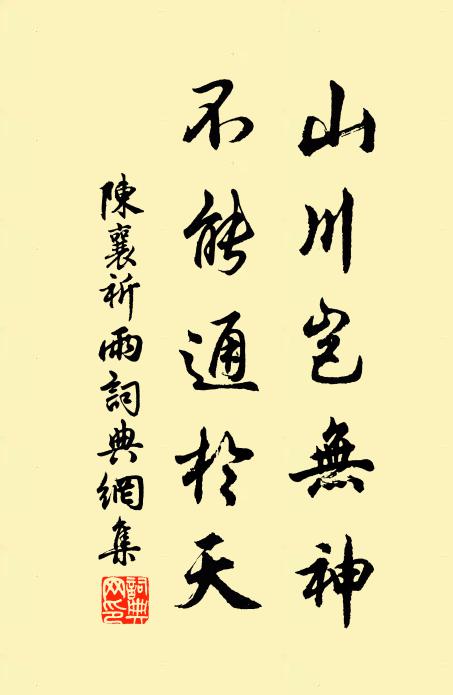 山川岂無神
不能通於天
陳襄祈雨詞典網集
詞典網印